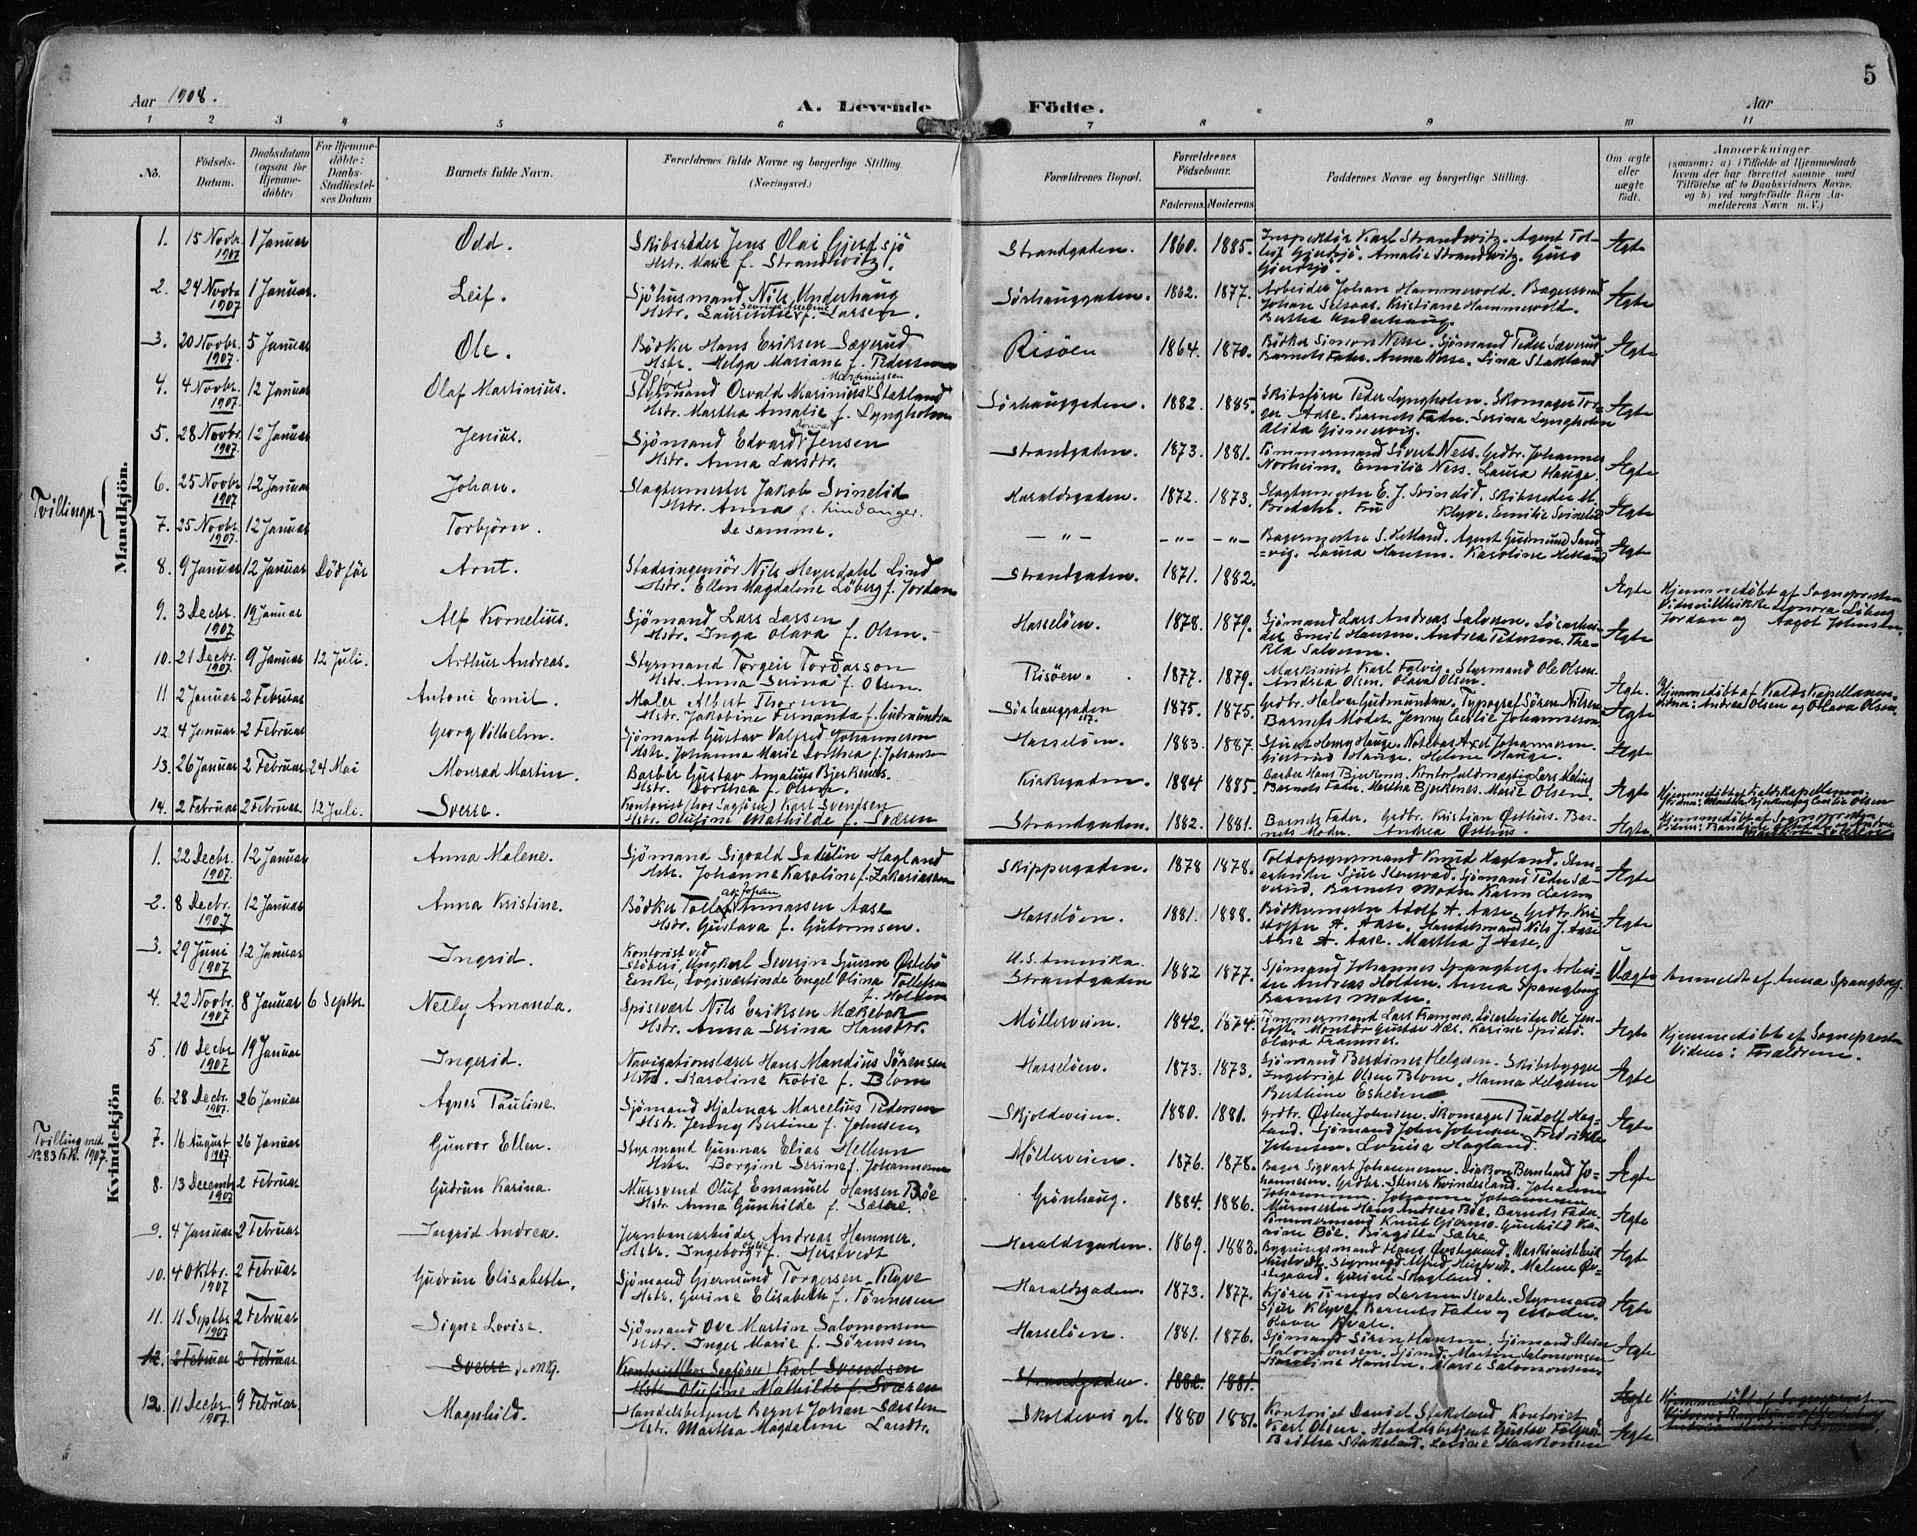 Aar 1908.
A. Levende Födte.
Aar
5
1 2 3 4 5 6 7 8 9 10 11
No.
Födsels-Datum.
Daabsdatum (ogsaa for Hjemmedöbte)
For Hjemmedöbte: Daabs-Stadfæstelses Datum
Barnets fulde Navn.
Forældrenes fulde Navne og borgerlige Stilling. (Næringsvei.)
Forældrenes Bopæl.
Forældrenes Födselsaar.
Faderens. Moderens.
Faddernes Navne og borgerlige Stilling.
Om ægte eller uægte födt.
Anmærkninger
(saasom: a) i Tilfælde af Hjemmedaab
hvem der har forrettet samme med
Tilföielse af to Daabsvidners Navne;
og b) ved uægtefödte Börn An-
melderens Navn m. V.)
Mandkjön.
1. 15 Novbr. 1907 1 Januar Odd. Skibsreder Jens Olai Gjerdsjö Hstr. Marie f. Strandwitz. Strandgaden. 1860. 1885. Inspektör Karl Strandwitz. Agent Tolleif Gjerdsjö. Amalie Strandwitz. Guro Gjerdsjö. Ægte
2. 24 Novbr. 1907 1 Januar. Leif. Sjöhusmand Nils Underhaug Hstr. Lauentse f. Larsen. Sörhauggaden. 1862. 1877. Arbeider Johan Hammervold. Bagersvend Johan Selsaas. Kristiane Hammervold. Bertha Underhaug. Ægte
3. 20 Novbr. 1907. 5 Januar Ole. Bödker Hans Eriksen Sæverud Hstr. Helga Mariane f. Pedersen Risöen 1864. 1870. Bödker Simon Nesse. Sjömand Peder Sæverud. Barnets Fader. Anna Nesse. Lina Stadland. Ægte
4. 4 Novbr. 1907. 12 Januar Olaf Martinius. Styrmand Osvald Marinius Martinussen Statland Hstr. Martha Amalie f. Lyngholm Sörhauggaden. 1882. 1885. Skibsförer Peder Lyngholm. Skomager Torger Aase. Barnets Fader. Serina Lyngholm Alida Gismervig. Ægte
5. 28 Novbr. 1907. 12 Januar Jenius. Sjömand Edvard Jensen Hstr. Anna Larsdtr. Strandgaden. 1873. 1881. Tömmermand Sivert Ness. Grdbr. Johannes Norheim. Emilie Ness. Laura Hauge. Ægte
Tvillinger
6. 25 Novbr. 1907 12 Januar Johan. Slagtermester Jakob Svinelid Hstr. Anna f. Lindanger. Haraldsgaden. 1872. 1873. Slagtermester E. J. Svinelid. Skibsreder M. Bredahl. Fru Klyve. Emilie Svinelid Ægte
7. 25 Novbr. 1907. 12 Januar Torbjörn. De samme. — " — — " — — " — Bagermester S. Hetland. Agent Gudmund Sandvig. Laura Hansen. Karoline Hetland Ægte
8. 9 Januar 12 Januar Död för Arnt. Stadsingeniör Nils Heyerdahl Lind Hstr. Ellen Magdalene Löberg f. Jordan Strandgaden. 1871. 1882. Ægte Hjemmedöbt af Sognepresten Vidner: Ulrikke Leonora Löberg Jordan og Aagot Johnsen.
9. 3 Decbr. 1907 19 Januar Alf Kornelius. Sjömand Lars Larsen Hstr. Inga Olava f. Olsen. Hasselöen. 1878. 1879. Sjömand Lars Andreas Salvesen. Lösarbeider Emil Hansen. Andrea Pedersen. Thekla Salvesen. Ægte
10. 21 Decbr. 1907. 9 Januar 12 Juli. Arthur Andreas. Styrmand Torgeir Tordarson Hstr. Anna Serina f. Olsen. Risöen. 1877. 1879. Maskinist Karl Falvig. Styrmand Ole Olsen. Andrea Olsen. Olava Olsen. Ægte. Hjemmedöbt af Kaldskapellanen. Vidner: Andrea Olsen og Olava Olsen.
11 2 Januar 2 Februar Antoni Emil. Maler Albert Thorsen Hstr. Jakobine Fernanda f. Gudmundsen Sörhauggaden 117. 1875. 1875. Grdbr. Halvor Gudmundsen. Typograf Sören Nilsen. Barnets Moder. Jenny Cecilie Johannesen Ægte
12. 4 Januar 2 Februar Georg Vilhelm. Sjömand Gustav Valfred Johannesson Hstr. Johanna Marie Dorthea f. Johansen Hasselöen. 1883. 1887. Henry Hauge. Notebas Axel Johannesen. Gjertrud Hauge. Helene Hauge. Ægte
13. 26 Januar 2 Februar 24 Mai Monrad Martin. Barber Gustav Angelius Bjerkenes. Hstr. Dorthea f. Olsen. Kirkegaden. 1884 1885. Barber Hans Bjerkenes. Kontorfuldmægtig Lars Meling Barnets Fader. Martha Bjerkenes. Marie Olsen. Ægte Hjemmedöbt af Kaldskapellanen. Vidner: Martha Bjerkenes og Cecilie Olsen
14. 2 Februar 2 Februar. 12 Juli. Sverre. Kontorist (hos Sagförer) Karl Svendsen Hstr. Olufine Mathilde f. Sværen Strandgaden. 1882. 1881. Barnets Fader. Grdbr. Kristian Östhus. Barnets Moder. Andrea Östhus. Ægte Hjemmedöbt af Sognepresten
Kvindekjön
1. 22 Decbr. 1907 12 Januar Anna Malene. Sjömand Sigvald Ladulin Hagland Hstr. Johanne Karoline f. Zakariassen Skippergaden. 1878 1878. Toldopsynsmand Knud Hagland. Stenarbeider Sjur Stensvad. Sjömand Peder Sæverud. Barnets Moder. Karen Larsen Ægte
2. 8 Decbr. 1907 12 Januar Anna Kristine. Bödker Tollef Annassen Aase Hstr. Gustava f. Gutormsen. Hasselöen. 1881. 1888. Bödkermester Adolf A. Aase. Grdbr. Kristoffer A. Aase. Handelsmand Nils J. Aase Ane A. Aase. Martha J Aase. Ægte
3. 29 Juni 1907 12 Januar Ingrid. Kontorist ved Støberi, Ungkarl Severin Sjursen Östebö Enke, Logisværtinde Engel Olina Tollefsen f. Holden U.S. Amerika. Strandgaden 1882 1877. Sjömand Johannes Spangberg. Arbeider Andreas Holden. Anna Spangberg Barnets Moder. Uægte Anmeldt af Anna Spangberg.
4. 22 Novbr. 1907 8 Januar 6 Septbr. Nelly Amanda. Spisevært Nils Eriksen Mækebak Hstr. Anna Serina Hansdtr. Möllerveien. 1842. 1874. Tömmermand Lars Framnes. Lösarbeider Ole Jentoft. Montör Gustav Næs. Karine Spidsö. Olava Framnes. Ægte Hjemmedöbt af Sognepresten Vidner: Forældrene.
5. 10 Decbr. 1907 19 Januar Ingerid. Navigationslærer Hans Mandius Sörensen Hstr. Karoline Kobie f. Blom Hasselöen. 1873. 1873. Sjömand Berdines Helgesen. Skibsbygger Ingebrigt Olsen Blom. Hanna Helgesen Berthine Esheim. Ægte
6. 28 Decbr. 1907. 26 Januar Agnes Pauline. Sjömand Hjalmar Marcelius Pedersen Hstr. Jenny Bertine f. Johnsen. Skjoldeveien. 1880. 1881. Grdbr. Östen Johnsen. Skomager Rudolf Hagland. Sjömand John Johnsen. Fredrikke Johnsen. Lovise Hagland. Ægte
Tvilling med No 83 K.K. 1907.
7. 16 August 1907. 26 Januar Gunvor Ellen. Styrmand Gunnar Elias Hellern Hstr. Borgine Serine f. Johannesen Möllerveien. 1876. 1878. Bager Sigvart Johannesen. Diakon Bernhard Johannesen. Grdbr. Stener Kvindesland. Johanne Johannesen. Johanne Johannesen Ægte
8. 13 Decembr 1907 2 Februar Gudrun Karina. Mursvend Oluf Emanuel Hansen Böe Hstr. Anna Gunhilde f. Sætre. Grönhaug. 1884. 1886. Murmester Hans Andreas Böe. Barnets Fader. Tömmermand Knut Gjermo. Gunhild Karine Böe. Birgitte Sætre. Ægte
9. 4 Januar 2 Februar Ingrid Andrea. Jernbanearbeider Andreas Hammer. Hstr. Ingeborg f. Hustvedt Haraldsgaden. 1869. 1883. Bygningsmand Hans Övstegaard. Maskinist Erik Hustvedt. Styrmand Alfred Hustvedt. Malene Övstegaard. Gurine Hagland. Ægte
10. 4 Oktbr. 1907 2 Februar Gudrun Elisabeth. Sjömand Gjermund Torgersen Klyve Hstr. Gurine Elisabeth f. Tönnesen Haraldsgaden. 1873. 1877. Kjörer Tönnes Larsen Kvale. Styrmand Sjur Klyve. Barnets Fader og Moder. Olava Kvale. Ægte
11. 11 Septbr 1907 2 Februar Signe Lovise. Sjömand Ove Martin Salomonsen Hstr. Inger Marie f. Sörensen Hasselöen. 1881. 1876. Sjömand Sören Hansen. Sjömand Salomonsen. Sjömd. Martin Salomonsen Karoline Hansen. Marie Salomonsen Ægte
12. 2 Februar 2 Februar Sverre Kontorist (hos Sagförer) Karl Svendsen Hstr. Olufine Mathilde f. Sværen Strandgaden. 1882. 1881. Ægte
12. 11 Decbr. 1907. 9 Februar Magnhild. Handelsbetjent Bernt Johan Sæsten Hstr. Martha Magdalene Larsdtr. Skoldevei gt. 1880 1881. Kontorist Daniel Stakeland. Kontorist Karl Olsen. Handelsbetjent Gustav Falgnæs Berthe Stakeland. Lovise Haakonsen Ægte